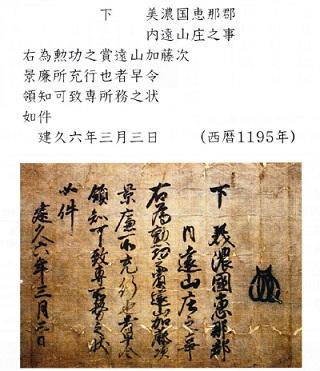 下　美濃国恵那郡
内遠山庄之事
右為勲功之賞遠山加藤次
景廉所充行也者早令
領知可致専所務之状
如件
建久六年三月三日　(西暦1195年)
下　美濃國恵那郡
内遠山庄之事
右為勲功之賞遠山加藤次
景廉所充行也者早令
領知可致専所務之状
如件
建久六年三月三日